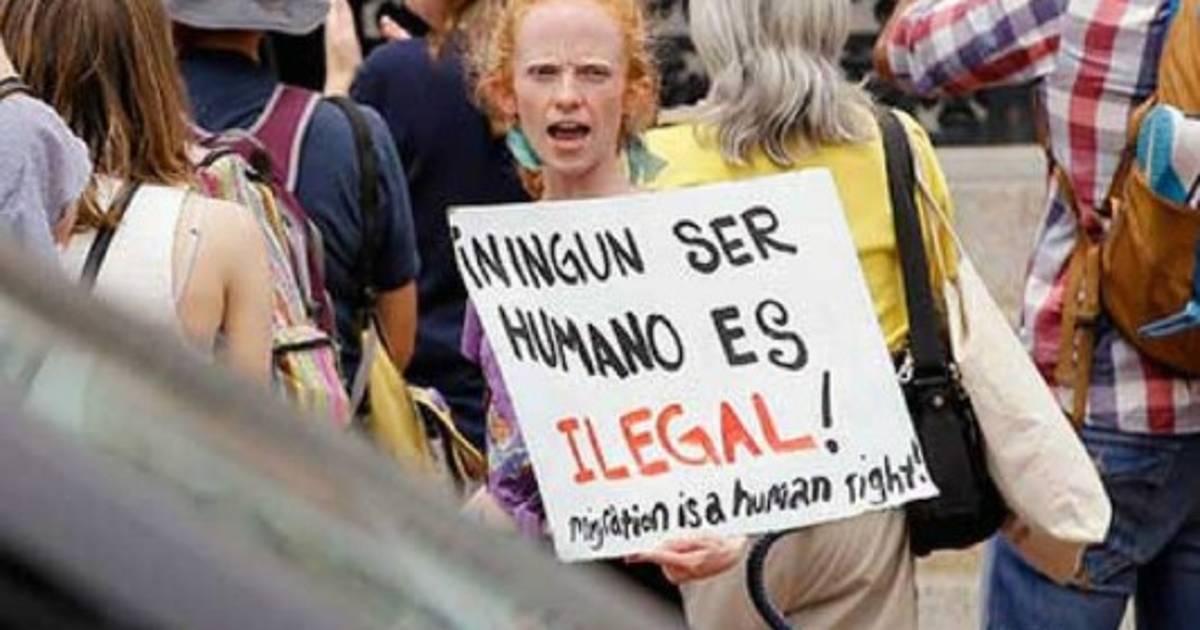 ¡NINGUN SER
HUMANO ES
ILEGAL!
migration is a human right!